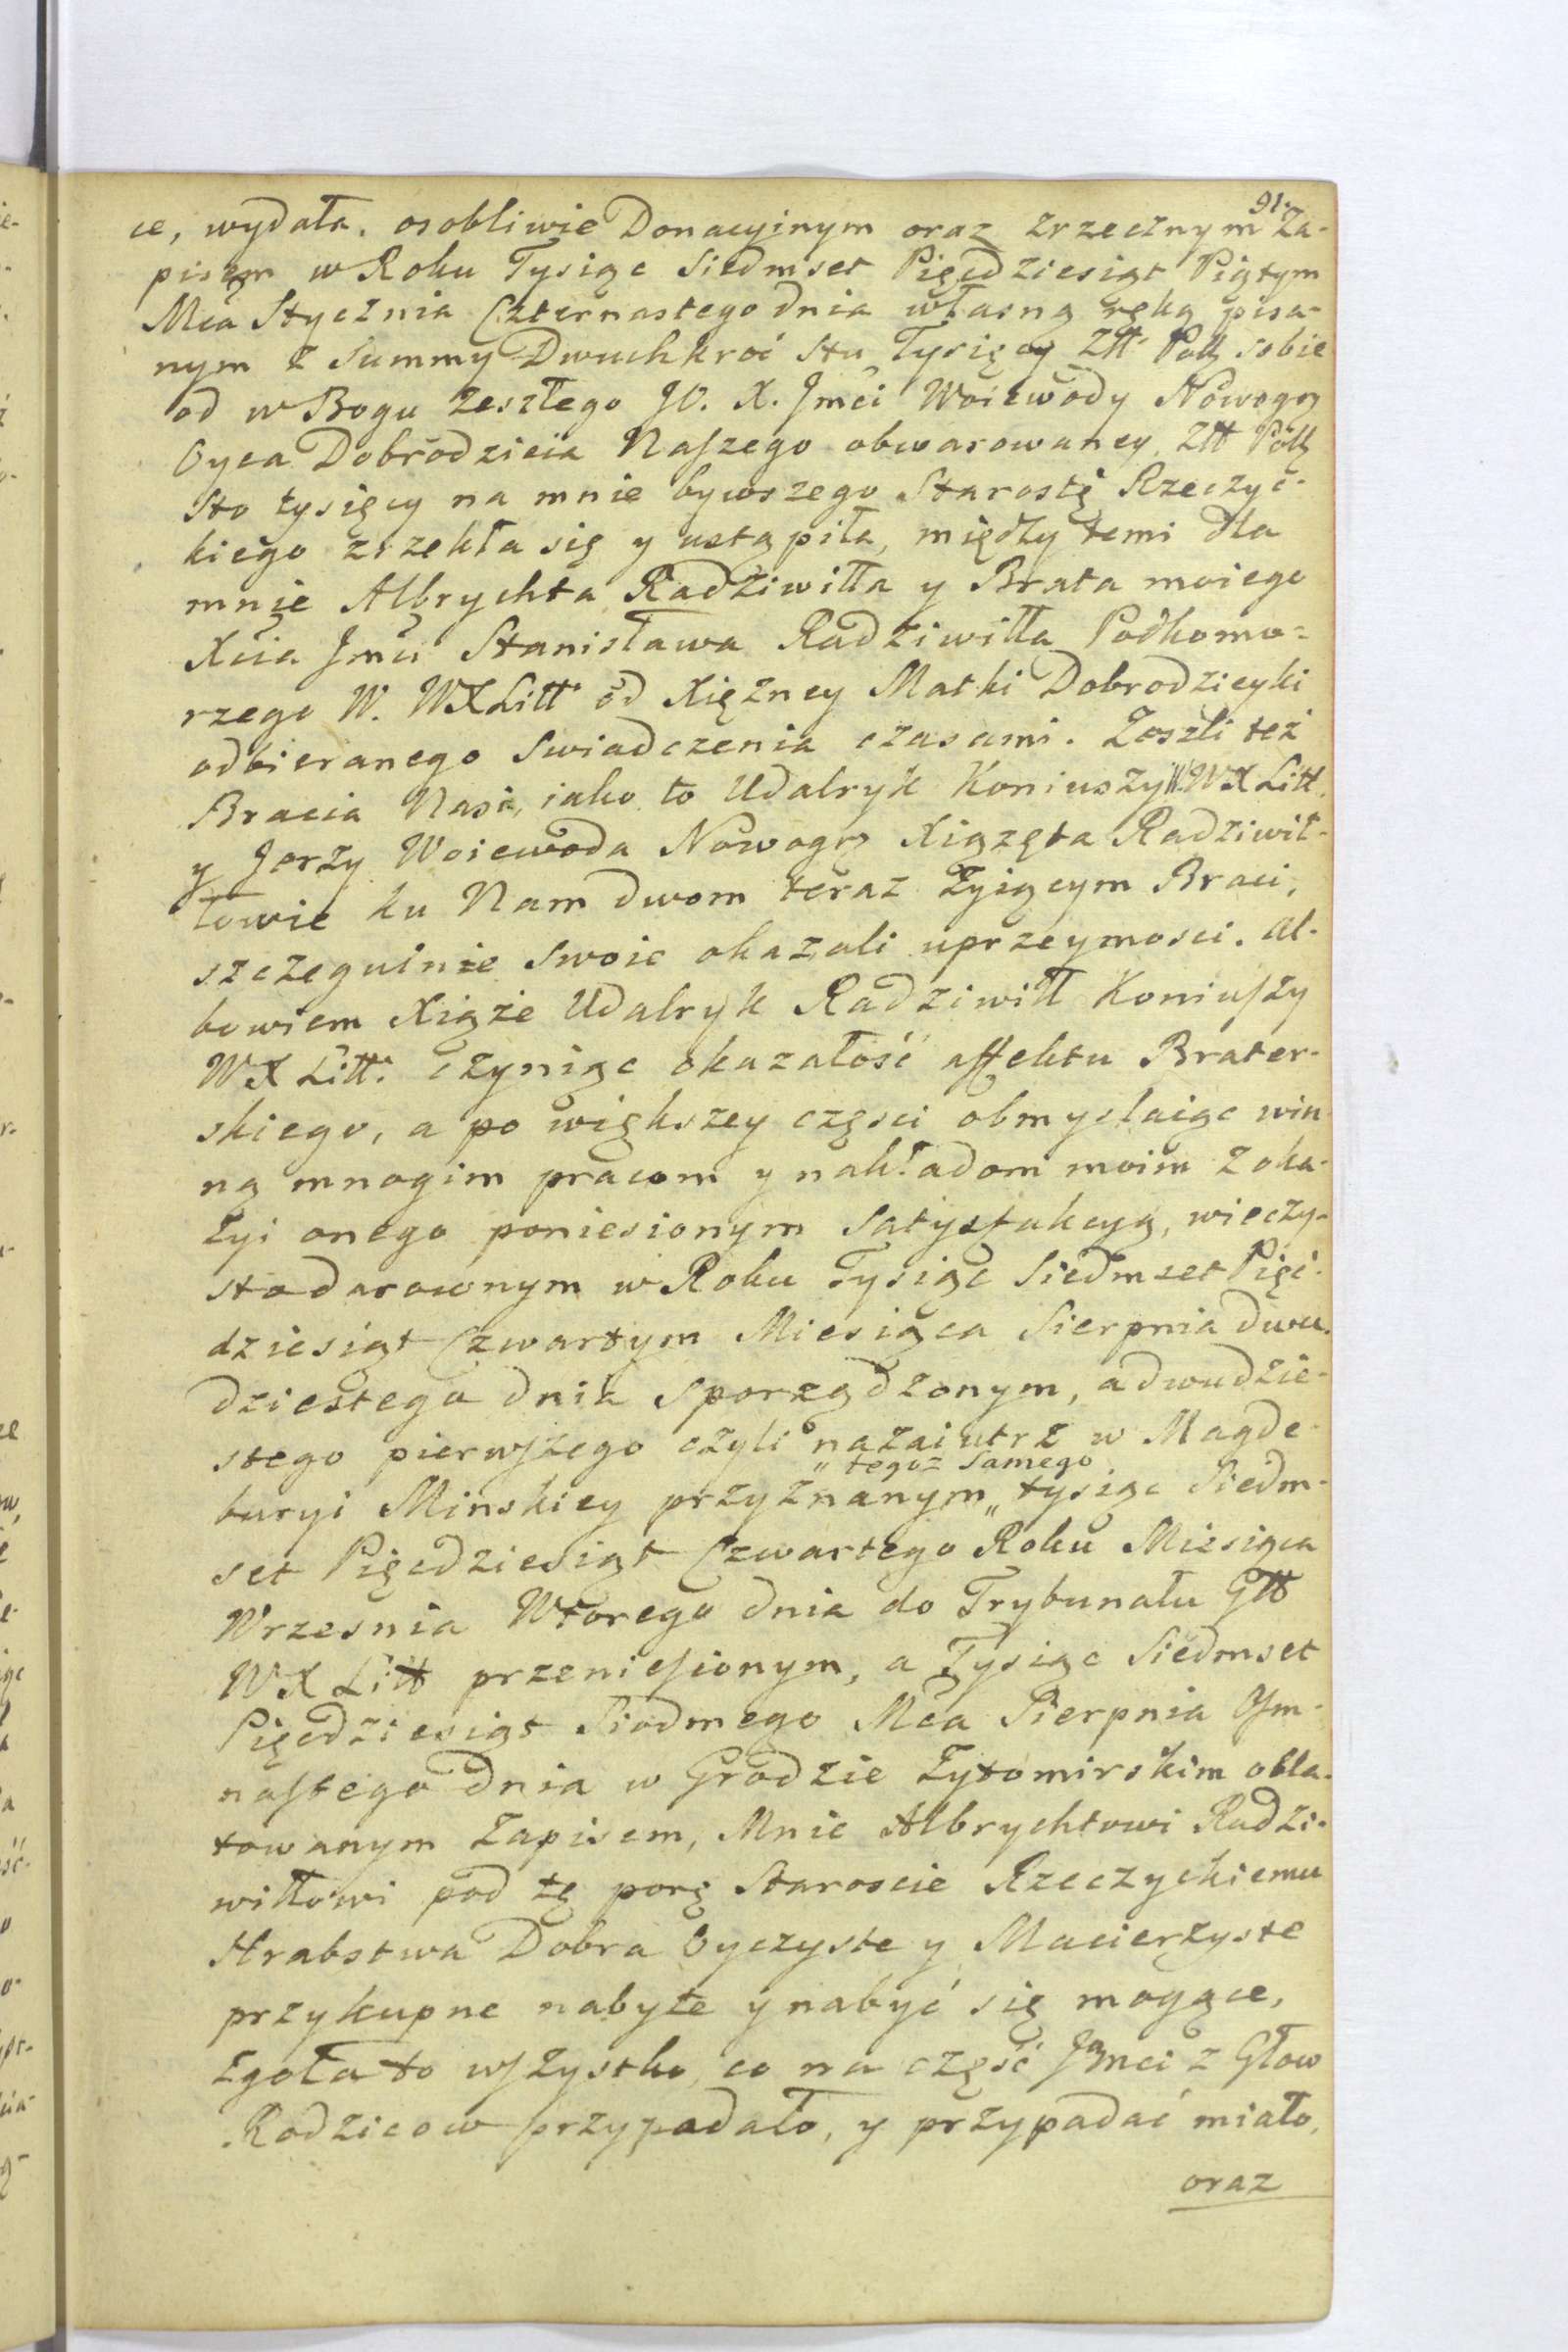 91.
ce, wydała. osobliwie Donacyinym oraz Zrzecznym Za-
pisem w Roku Tysiąc Siedmset Pięcdziesiąt Piątym
Mca Stycznia Czternastego dnia własną ręką pisa-
nym z Summy Dwuchkroć stu Tysięcy Złł Polł sobie
od w Bogu Zeszłego JO. X. Jmci Woiewody Nowogo
Oyca Dobrodzieia Naszego obwarowaney, Złł Polł
sto tysięcy na mnie bywszego Starostę Rzeczyc-
kiego zrzekła się y ustąpiła, między temi dla
mnie Albrychta Radziwiłła y Brata moiego
Xcia Jmci Stanisława Radziwiłła Podkomo-
rzego W. WXLitt od Xiężney Matki Dobrodzieyki
odbieranego swiadczenia czasami. Zoszli też
Bracia Nasi, iako to Udalryk Koniuszy W. WX Litt.
y Jerzy Woiewoda Nowogo Xiązęta Radziwił-
łowie ku Nam dwom teraz Zyiącym Braci,
szczegulnie swoie okazali uprzeymosci. Al-
bowiem Xiąże Udalryk Radziwiłł Koniuszy
WX Litt. czyniąc okazałość affektu Brater-
skiego, a po większey części obmyslaiąc win-
ną mnogim pracom y nakładom moim z oka-
zyi onego poniesionym satysfakcyą, wieczy-
stodarownym w Roku Tysiąc Siedmset Pięć-
dziesiąt Czwartym Miesiąca Sierpnia dwu-
dziestego dnia sporządzonym, a dwudzie-
stego pierwszego czyli nazaiutrz w Magde-
buryi Minskiey przyznanym „ tysiąc Siedm-
„ tegoz samego
set Pięcdziesiąt Czwartego Roku Miesiąca
Wrzesnia Wtorego dnia do Trybunału Głł
WX Litt przeniesionym, a Tysiąc Siedmset
Pięcdziesiąt Siodmego Mca Sierpnia Osm-
nastego dnia w Grodzie Zytomirskim obla-
towanym Zapisem, Mnie Albrychtowi Radzi-
wiłłowi pod tę porę Staroscie Rzeczyckiemu
Hrabstwa Dobra Oyczyste y Macierzyste
przykupne nabyte y nabyć się mogące,
Zgoła to wszystko, co na część Jmci z Głow
Rodzicow przypadało, y przypadać miało,
oraz